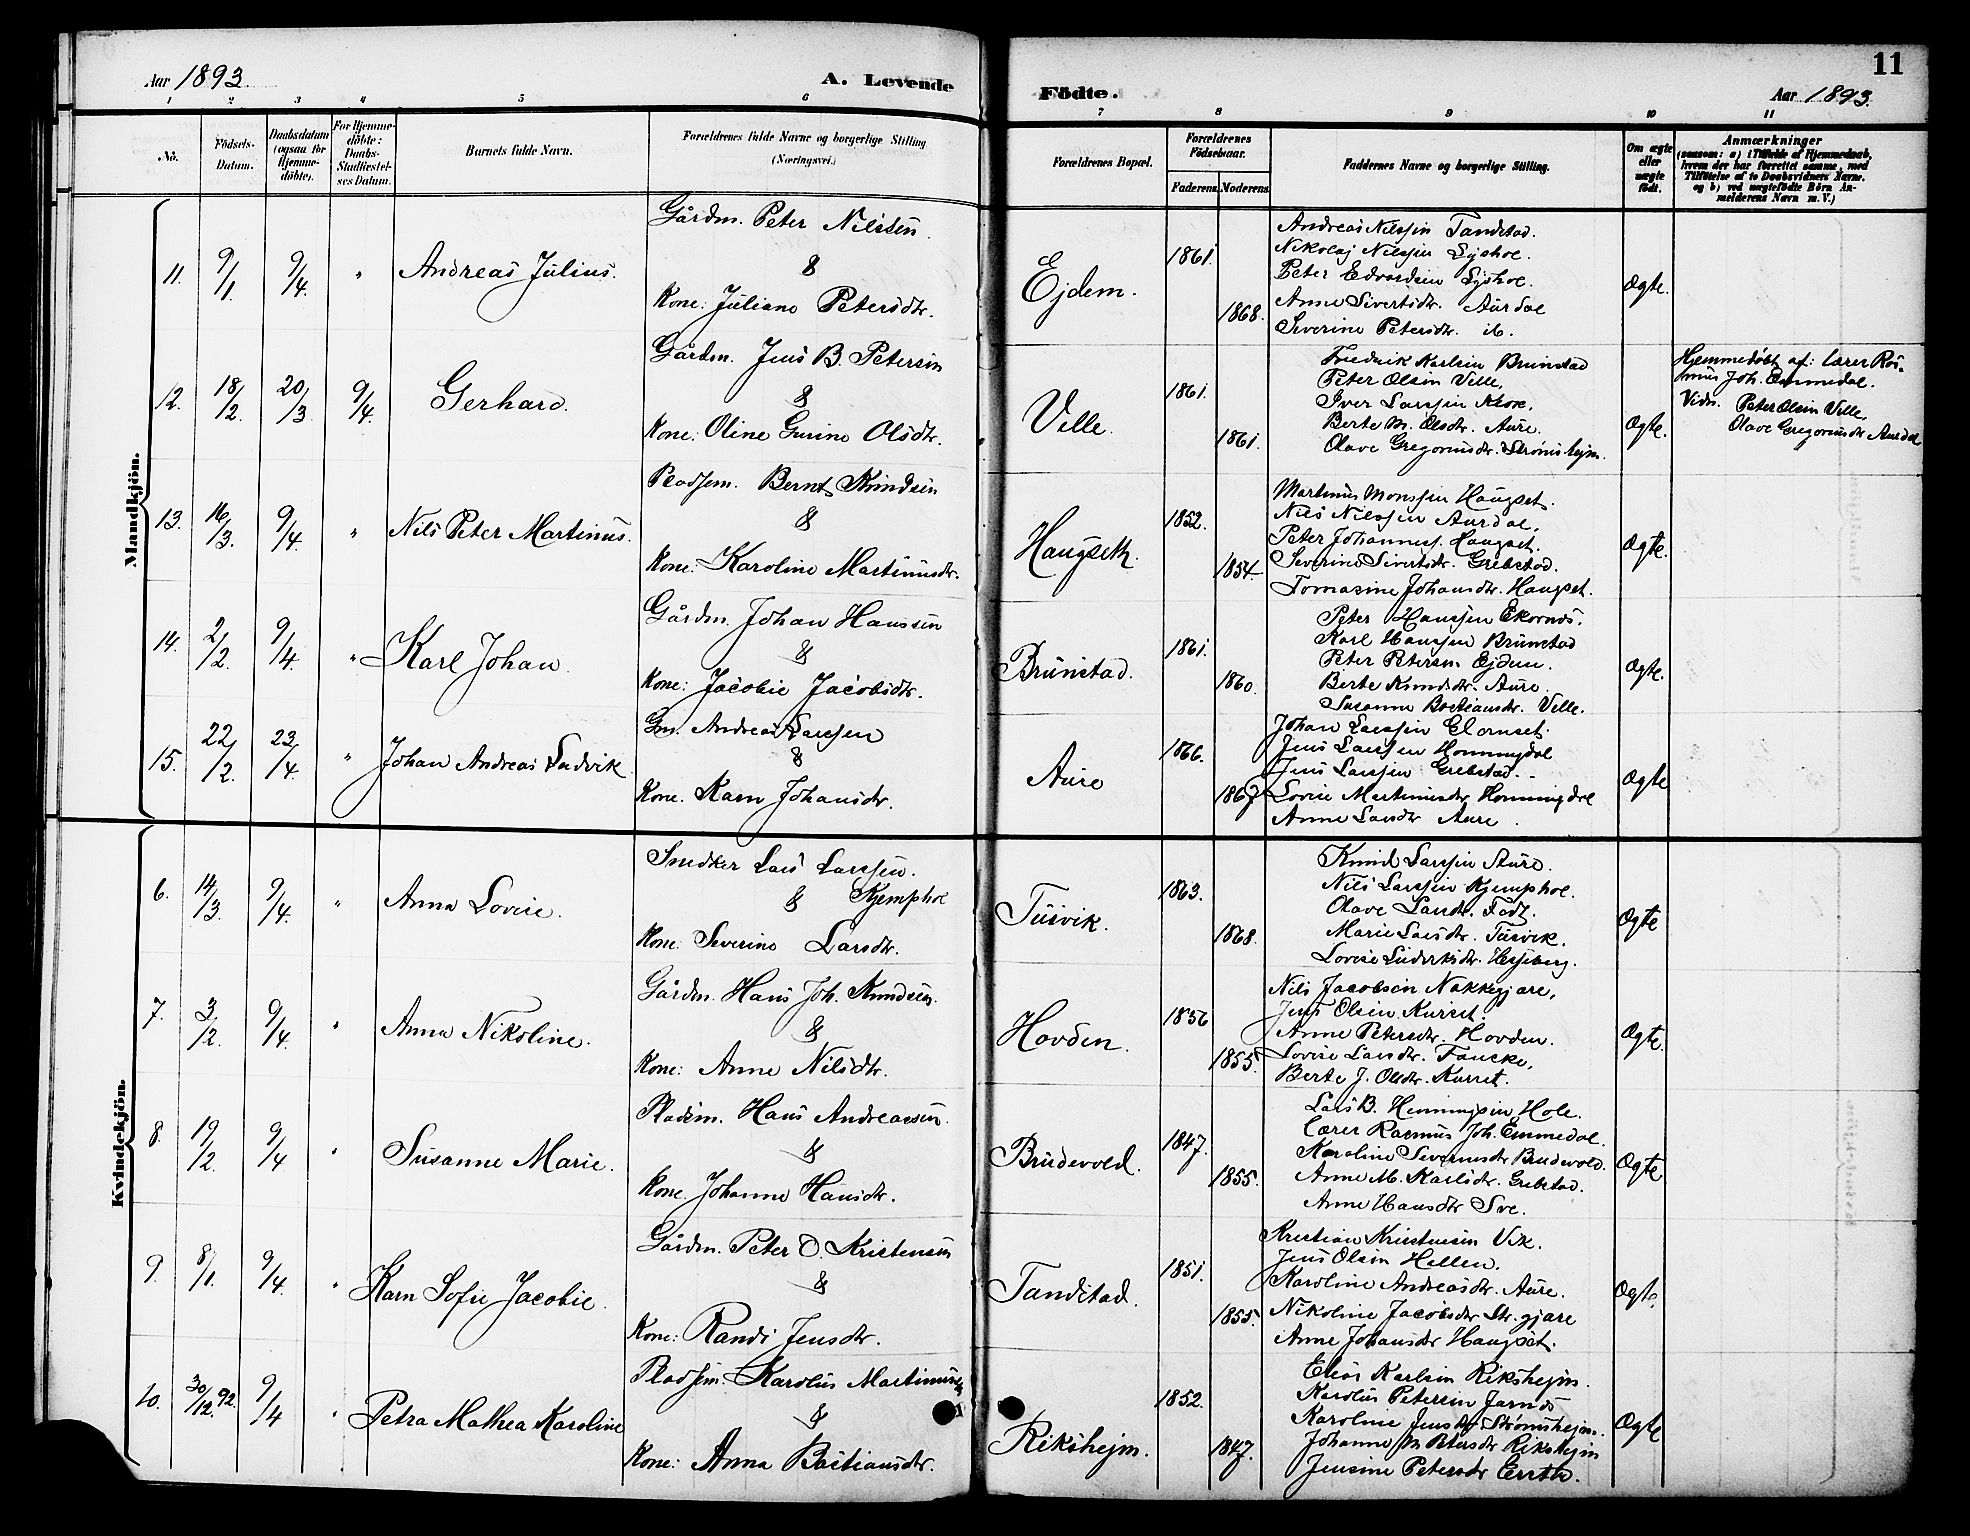 Aar 1893.
A. Levende
Födte.
Aar 1893.
11
1 2 3 4 5 6 7 8 9 10 11
No.
Födsels-
Datum.
Daabsdatum
(ogsaa for
Hjemme-
döbte).
For Hjemme-
döbte:
Daabs-
Stadfæstel-
ses Datum.
Barnets fulde Navn.
Forældrenes fulde Navne og borgerlige Stilling
(Næringsvei.)
Forældrenes Bopæl.
Forældrenes
Födselsaar.
Faderens. Moderens.
Faddernes Navne og borgerlige Stilling.
Om ægte
eller
uægte
født.
Anmærkninger
(saasom: a) i Tilfælde af Hjemmedaab,
hvem der har forrettet samme, med
Tilföielse af to Daabsvidners Navne,
og b) ved uægtefödte Börn An-
melderens Navn m. V.)
Mandkjön.
11. 9/1. 9/4. " Andreas Julius.
Gårdm. Peter Nilssen.
&
Kone: Juliane Petersdtr.
Ejdem. 1861. 1868.
Andreas Nilssen Tandstad.
Nikolaj Nilssen Lyshol.
Peter Edvardsen Lyshol.
Anne Sivertsdtr. Aurdal
Severine Petersdtr. ib.
Ægte.
12. 18/2. 20/3. 9/4. Gerhard.
Gårdm. Jens B. Petersen
&
Kone: Oline Gurine Olsdtr.
Velle. 1861. 1861.
Fredrik Karlsen Brunstad
Peter Olsen Velle,
Iver Larssen Krok,
Berte M. Olsdtr. Aure.
Olave Gregoriusdtr. Strømshejm.
Ægte.
Hjemmedøbt af: Lærer Ras-
mus Joh. Emmedal.
Vidn. Peter Olsen Velle,
Olave Gregoriusdtr Aurdal
13. 16/3. 9/4. " Nils Peter Martinus.
Pladsem. Bernt Knudsen
&
Kone: Karoline Martinusdtr.
Haugseth 1852. 1854.
Martinus Monssen Haugset.
Nils Nilssen Aurdal,
Peter Johanness. Haugset.
Severine Sivertsdtr. Grebstad.
Tomasine Johansdtr. Haugset.
Ægte.
14. 2/2. 9/4. " Karl Johan.
Gårdm. Johan Hanssen
&
Kone: Jacobie Jacobsdtr.
Brunstad. 1861. 1860.
Peter Hanssen Ekornes.
Karl Hanssen Brunstad
Peter Petersen Ejdem.
Berte Knudsdtr. Aure.
Susanne Bastiansdtr. Velle.
Ægte.
15. 22/2. 23/4. " Johan Andreas Ludvik
Gm. Andreas Larssen
&
Kone. Karn Johansdtr.
Aure 1866. 1867
Johan Larssen
Jens Larssen Honningdal
Jens Larssen Grebstad.
Lovise Martinusdtr Honningdal
Anne Larsdtr Aure.
Ægte
Kvindekjön.
6. 14/3. 9/4. " Anna Lovise.
Snedker Lars Larssen.
& Kjemphol
Kone: Severine Larsdtr.
Tusvik. 1863. 1868.
Knud Larssen Aure.
Nils Larssen Kjemphol.
Olave Larsdtr.
Marie Larsdtr. Tusvik.
Lovise Ludviksdtr. Hesseberg.
Ægte
7. 3/2. 9/4. " Anna Nikoline.
Gårdm. Hans Joh. Knudsen.
&
Kone: Anne Nilsdtr.
Hovden. 1856 1855.
Nils Jacobsen Nakkegjære,
Jens Olsen Kurset.
Anne Petersdtr. Hovden.
Lovise Larsdtr.
Berte J. Olsdtr. Kurset.
Ægte.
8. 19/2. 9/4. " Susanne Marie.
Pladsm. Hans Andreassen.
&
Kone. Johanne Hansdtr.
Brudevold. 1847. 1855.
Lars B. Henningsen Hole.
Lærer Rasmus Joh. Emmedal.
Karoline Severinsdtr Brudevold.
Anne M. Karlsdtr. Grebstad.
Anne Hansdtr Sve.
Ægte
9. 8/1. 9/4. " Karn Sofie Jacobie.
Gårdm. Peter O. Kristensen
&
Kone: Randi Jensdtr.
Tandstad. 1851. 1855.
Kristian Kristensen Vik.
Jens Olsen Hellen.
Karoline Andreasdtr. Aure.
Nikoline Jacobsdtr Str.gjære
Anne Johansdtr Haugset.
Ægte.
10. 30/12. 92. 9/4 " Petra Mathea Karoline
Pladsem. Karolus Martinussen
&
Kone: Anna Bastiansdtr.
Rikshejm. 1852. 1847.
Elias Karlsen Rikshejm.
Karolus Petersen Jarnes
Karoline Jensdtr Strømshejm.
Johanne M Petersdtr Rikshejm
Jensine Petersdtr
Ægte